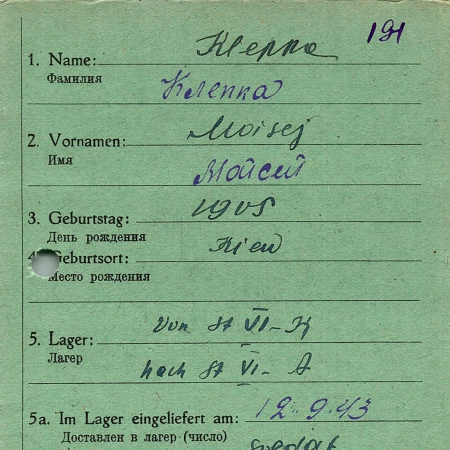 191
1. Name: Kleppa
Фамилия
Клепка
2. Vornamen: Moisej
Имя
Мойсей
3. Geburtstag: 1905
День рождения
4. Geburtsort: Kiew
Место рождения
5. Lager: Von St VI-K
Лагер
nach St VI-A
5a. Im Lager eingeliefert am: 12.9.43
Доставлен в лагер (число)
Soldat